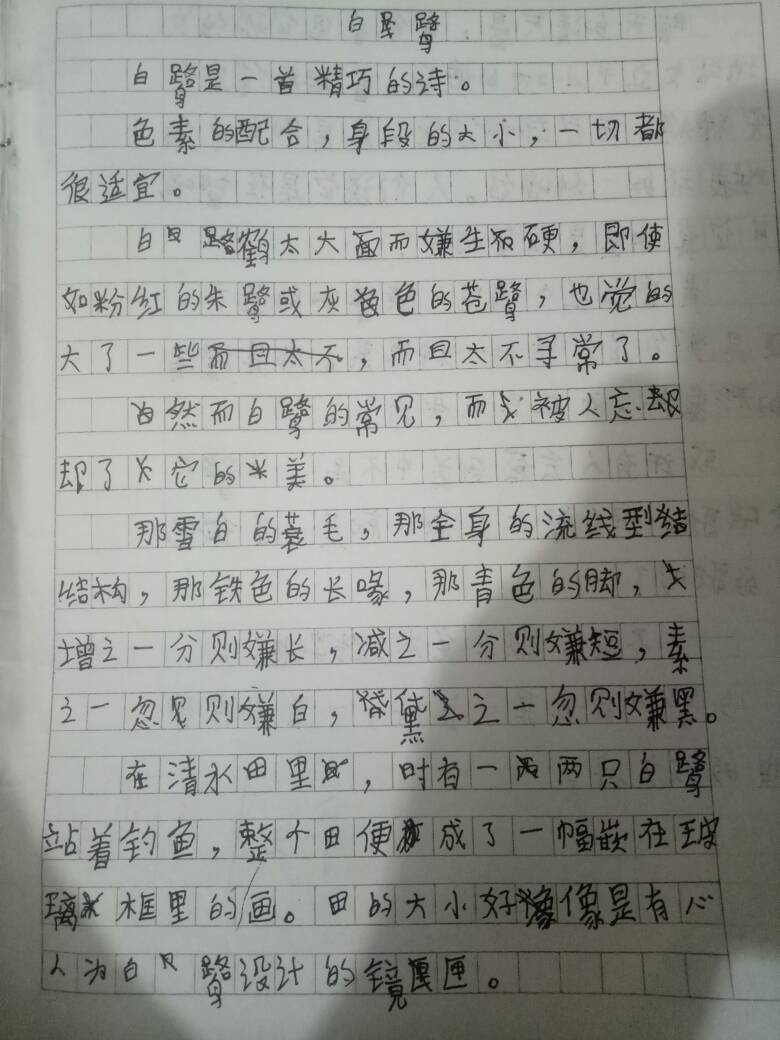 白鹭
白鹭是一首精巧的诗。
色素的配合，身段的大小，一切都
很适宜。
白鹤太大而嫌生硬，即使
如粉红的朱鹭或灰色的苍鹭，也觉的
大了一些，而且太不寻常了。
然而白鹭的常见，而被人忘却
却了它的美。
那雪白的蓑毛，那全身的流线型结
结构，那铁色的长喙，那青色的脚，
增之一分则嫌长，减之一分则嫌短，素
之一忽则嫌白，黛之一忽则嫌黑。
在清水田里，时有一两只白鹭
站着钓鱼，整个田便成了一幅嵌在玻
璃框里的画。田的大小好像是有心
人为白鹭设计的镜匣。